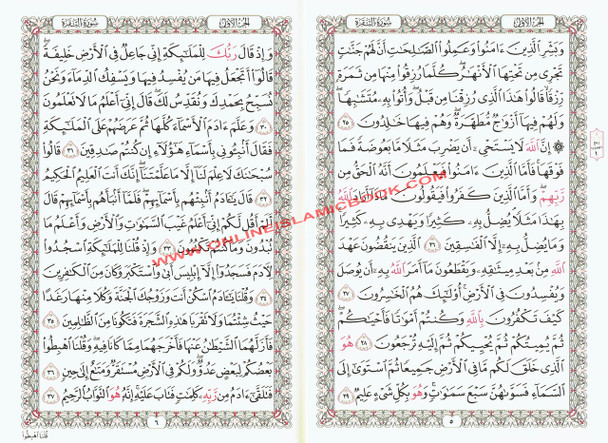 الجزء الأول
سورة البقرة
وَبَشِّرِ الَّذِينَ ءَامَنُوا وَعَمِلُوا الصَّالِحَاتِ أَنَّ لَهُمْ جَنَّاتٍ
تَجْرِي مِن تَحْتِهَا الْأَنْهَارُ كُلَّمَا رُزِقُوا مِنْهَا مِن ثَمَرَةٍ
رِّزْقًا قَالُوا هَٰذَا الَّذِي رُزِقْنَا مِن قَبْلُ وَأُتُوا بِهِ مُتَشَابِهًا
وَلَهُمْ فِيهَا أَزْوَاجٌ مُّطَهَّرَةٌ وَهُمْ فِيهَا خَالِدُونَ ٢٥
۞ إِنَّ اللَّهَ لَا يَسْتَحْيِ أَن يَضْرِبَ مَثَلًا مَّا بَعُوضَةً فَمَا
فَوْقَهَا فَأَمَّا الَّذِينَ ءَامَنُوا فَيَعْلَمُونَ أَنَّهُ الْحَقُّ مِن
رَّبِّهِمْ وَأَمَّا الَّذِينَ كَفَرُوا فَيَقُولُونَ مَاذَا أَرَادَ اللَّهُ
بِهَٰذَا مَثَلًا يُضِلُّ بِهِ كَثِيرًا وَيَهْدِي بِهِ كَثِيرًا
وَمَا يُضِلُّ بِهِ إِلَّا الْفَاسِقِينَ ٢٦ الَّذِينَ يَنقُضُونَ عَهْدَ
اللَّهِ مِن بَعْدِ مِيثَاقِهِ وَيَقْطَعُونَ مَا أَمَرَ اللَّهُ بِهِ أَن يُوصَلَ
وَيُفْسِدُونَ فِي الْأَرْضِ أُولَٰئِكَ هُمُ الْخَاسِرُونَ ٢٧
كَيْفَ تَكْفُرُونَ بِاللَّهِ وَكُنتُمْ أَمْوَاتًا فَأَحْيَاكُمْ
ثُمَّ يُمِيتُكُمْ ثُمَّ يُحْيِيكُمْ ثُمَّ إِلَيْهِ تُرْجَعُونَ ٢٨ هُوَ
الَّذِي خَلَقَ لَكُم مَّا فِي الْأَرْضِ جَمِيعًا ثُمَّ اسْتَوَىٰ إِلَى
السَّمَاءِ فَسَوَّاهُنَّ سَبْعَ سَمَاوَاتٍ وَهُوَ بِكُلِّ شَيْءٍ عَلِيمٌ ٢٩
٥
الجزء الأول
سورة البقرة
وَإِذْ قَالَ رَبُّكَ لِلْمَلَائِكَةِ إِنِّي جَاعِلٌ فِي الْأَرْضِ خَلِيفَةً
قَالُوا أَتَجْعَلُ فِيهَا مَن يُفْسِدُ فِيهَا وَيَسْفِكُ الدِّمَاءَ وَنَحْنُ
نُسَبِّحُ بِحَمْدِكَ وَنُقَدِّسُ لَكَ قَالَ إِنِّي أَعْلَمُ مَا لَا تَعْلَمُونَ
٣٠ وَعَلَّمَ ءَادَمَ الْأَسْمَاءَ كُلَّهَا ثُمَّ عَرَضَهُمْ عَلَى الْمَلَائِكَةِ
فَقَالَ أَنبِئُونِي بِأَسْمَاءِ هَٰؤُلَاءِ إِن كُنتُمْ صَادِقِينَ ٣١ قَالُوا
سُبْحَانَكَ لَا عِلْمَ لَنَا إِلَّا مَا عَلَّمْتَنَا إِنَّكَ أَنتَ الْعَلِيمُ الْحَكِيمُ
٣٢ قَالَ يَا ءَادَمُ أَنبِئْهُم بِأَسْمَائِهِمْ فَلَمَّا أَنبَأَهُم بِأَسْمَائِهِمْ قَالَ
أَلَمْ أَقُل لَّكُمْ إِنِّي أَعْلَمُ غَيْبَ السَّمَاوَاتِ وَالْأَرْضِ وَأَعْلَمُ مَا
تُبْدُونَ وَمَا كُنتُمْ تَكْتُمُونَ ٣٣ وَإِذْ قُلْنَا لِلْمَلَائِكَةِ اسْجُدُوا
لِآدَمَ فَسَجَدُوا إِلَّا إِبْلِيسَ أَبَىٰ وَاسْتَكْبَرَ وَكَانَ مِنَ الْكَافِرِينَ
٣٤ وَقُلْنَا يَا ءَادَمُ اسْكُنْ أَنتَ وَزَوْجُكَ الْجَنَّةَ وَكُلَا مِنْهَا رَغَدًا
حَيْثُ شِئْتُمَا وَلَا تَقْرَبَا هَٰذِهِ الشَّجَرَةَ فَتَكُونَا مِنَ الظَّالِمِينَ ٣٥
فَأَزَلَّهُمَا الشَّيْطَانُ عَنْهَا فَأَخْرَجَهُمَا مِمَّا كَانَا فِيهِ وَقُلْنَا اهْبِطُوا
بَعْضُكُمْ لِبَعْضٍ عَدُوٌّ وَلَكُمْ فِي الْأَرْضِ مُسْتَقَرٌّ وَمَتَاعٌ إِلَىٰ حِينٍ ٣٦
فَتَلَقَّىٰ ءَادَمُ مِن رَّبِّهِ كَلِمَاتٍ فَتَابَ عَلَيْهِ إِنَّهُ هُوَ التَّوَّابُ الرَّحِيمُ ٣٧
٦
قُلْنَا اهْبِطُوا
WWW.ONLINEISLAMICBOOK.COM